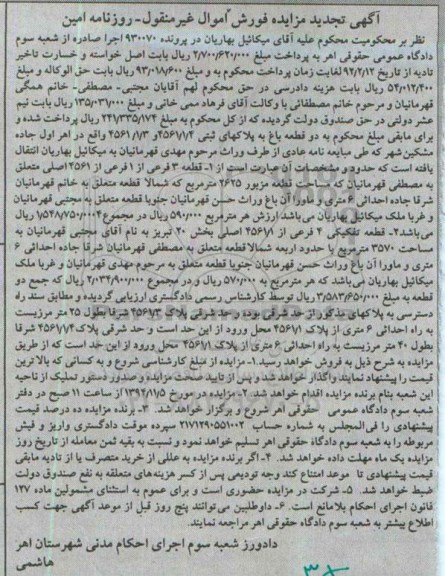 آگهی تجدید مزایده فورش اموال غیرمنقول-روزنامه امین
نظر بر محکومیت محکوم علیه آقای میکائیل بهاریان در پرونده ۹۳۰۰۷۰ اجرا صادره از شعبه سوم
دادگاه عمومی حقوقی اهر به پرداخت مبلغ ۲/۷۰۰/۶۲۰/۰۰۰ ریال بابت اصل خواسته و خسارت تاخیر
تادیه از تاریخ ۹۲/۲/۱۲ لغایت زمان پرداخت محکوم به و مبلغ ۹۳/۰۱۸/۶۰۰ ریال بابت حق الوکاله و مبلغ
۵۴/۰۱۲/۴۰۰ ریال بابت هزینه دادرسی در حق محکوم لهم آقایان مجتبی- مصطفی- خانم همگی
قهرمانیان و مرحوم خانم مصطفائی با وکالت آقای فرهاد ممی خانی و مبلغ ۱۳۵/۰۳۱/۰۰۰ ریال بابت نیم
عشر دولتی در حق صندوق دولت گردیده که از کل محکوم به مبلغ ۲۴۱/۳۳۵/۱۷۴ ریال پرداخت شده و
برای مابقی مبلغ محکوم به دو قطعه باغ به پلاکهای ثبتی ۴۵۶۷/۲ و ۴۵۶۱/۱/۳ واقع در اهر اول جاده
مشکین شهر که طی مبایعه نامه عادی از طرف وراث مرحوم مهدی قهرمانیان به میکائیل بهاریان انتقال
یافته است که حدود و مشخصات آن عبارت است از ۱- قطعه ۳ فرعی از ۱ فرعی از ۴۵۶۱ اصلی متعلق
به مصطفی قهرمانیان که مساحت قطعه مزبور ۲۶۲۵ مترمربع که شمالا قطعه متعلق به خانم قهرمانیان
شرقا جاده احداثی ۶ متری و ماورا آن باغ وراث حسن قهرمانیان جنوبا قطعه متعلق به مجتبی قهرمانیان
و غربا ملک میکائیل بهاریان می باشد ارزش هر مترمربع ۵۹۰/۰۰۰ ریال در مجموع ۱/۵۴۸/۷۵۰/۰۰۰ ریال
می باشد ۲- قطعه تفکیکی ۲ فرعی از ۴۵۶۷/۱ اصلی بخش ۲۰ تبریز به نام آقای مجتبی قهرمانیان به
مساحت ۳۵۷۰ مترمربع با حدود اربعه شمالا قطعه متعلق به مصطفی قهرمانیان شرقا جاده احداثی ۶
متری و ماورا آن باغ وراث حسن قهرمانیان جنوبا قطعه متعلق به مرحوم مهدی قهرمانیان و غربا ملک
میکائیل بهاریان می باشد که هر مترمربع به ۵۷۰/۰۰۰ ریال و در مجموع ۲/۰۳۴/۹۰۰/۰۰۰ ریال که جمع دو
قطعه به مبلغ ۳/۵۸۳/۶۵۰/۰۰۰ ریال توسط کارشناس رسمی دادگستری ارزیابی گردیده و مطابق سند راه
دسترسی به پلاکهای مذکور از حد شرقی بوده و حد شرقی پلاک ۴۵۶۷/۳ شرقا بطول ۲۵ متر مرزیست
به راه احداثی ۶ متری از پلاک ۴۵۶۷/۱ محل ورود از این حد است و حد شرقی پلاک ۴۵۶۷/۱/۴ شرقا
بطول ۴۰ متر مرزیست به راه احداثی ۶ متری از پلاک ۴۵۶۷/۱ محل ورود از این حد است که از طریق
مزایده به شرح ذیل به فروش خواهد رسید ۱- مزایده از مبلغ کارشناسی شروع و به کسانی که بالاترین
قیمت را پیشنهاد نمایند واگذار خواهد شد و پس از تایید صحت مزایده و صدور دستور تملیک از ناحیه
این شعبه بنام برنده مزایده اقدام خواهد شد. ۲- مزایده در مورخ ۱۳۹۴/۱/۵ از ساعت ۱۱ صبح در دفتر
شعبه سوم دادگاه عمومی حقوقی اهر شروع و برگزار خواهد شد. ۳- برنده مزایده ده درصد قیمت
پیشنهادی را فی المجلس به شماره حساب ۲۱۷۱۲۹۰۵۵۱۰۰۲ سپرده موقت دادگستری واریز و فیش
مربوطه را به شعبه سوم دادگاه حقوقی اهر تسلیم خواهد نمود و نسبت به بقیه ثمن معامله از تاریخ روز
مزایده یک ماه مهلت داده خواهد شد. ۴- اگر برنده مزایده به عللی از خرید متصرف یا از تادیه مابقی
قیمت پیشنهادی تا موعد امتناع کند وجه تودیعی پس از کسر هزینه های متعلقه به نفع صندوق دولت
ضبط خواهد شد. ۵- شرکت در مزایده حضوری است و برای عموم به استثنای مشمولین ماده ۱۲۷
قانون اجرای احکام بلامانع است. ۶- داوطلبین می توانند پنج روز قبل از موعد آگهی جهت کسب
اطلاع بیشتر به شعبه سوم دادگاه حقوقی اهر مراجعه نمایند.
دادورز شعبه سوم اجرای احکام مدنی شهرستان اهر
هاشمی